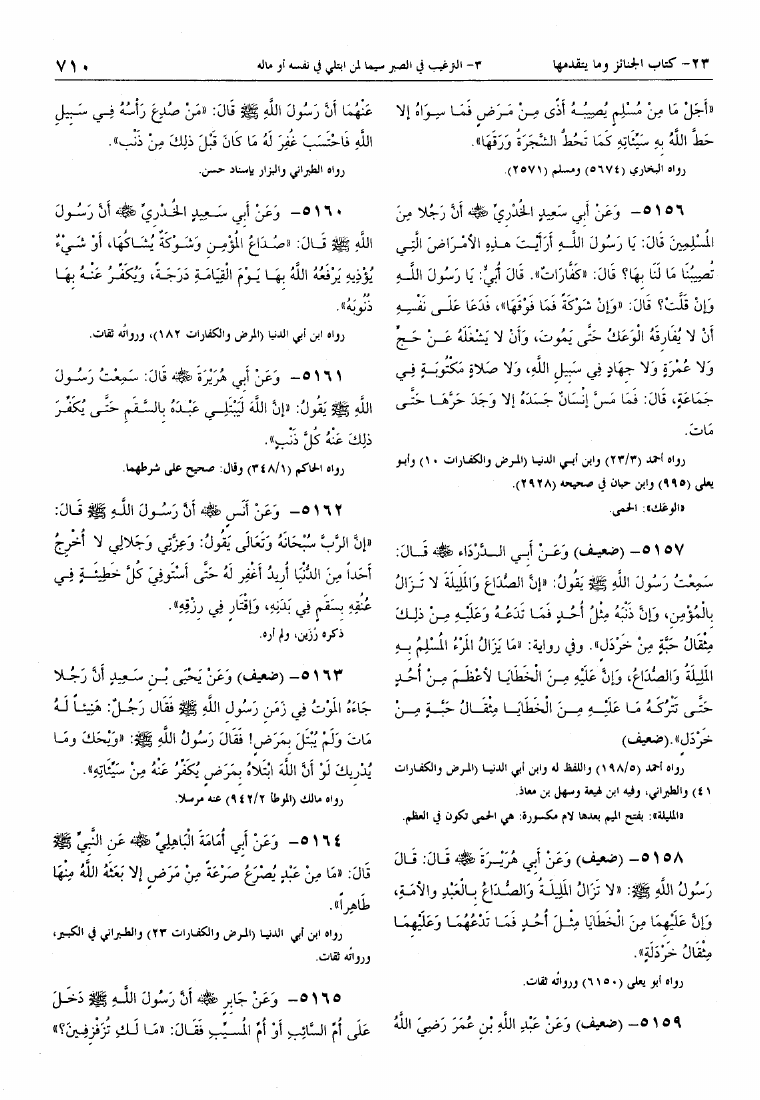 ٢٣- كتاب الجنائز وما يتقدمها
٣- الترغيب في الصبر سيما لمن ابتلي في نفسه أو ماله
٧١٠
«أَجَلْ مَا مِنْ مُسْلِمٍ يُصِيبُهُ أَذًى مِنْ مَرَضٍ فَمَا سِوَاهُ إلا
حَطَّ اللَّهُ بِهِ سَيِّئَاتِهِ كَمَا تَحُطُّ الشَّجَرَةُ وَرَقَهَا».
رواه البخاري (٥٦٧٤) ومسلم (٢٥٧١).
٥١٥٦- وَعَنْ أبي سَعِيدٍ الْخُدْرِيِّ ﷺ أَنَّ رَجُلا مِنَ
الْمُسْلِمِينَ قَالَ: يَا رَسُولَ اللَّهِ أَرَأَيْتَ هَذِهِ الأَمْرَاضَ الَّتِي
تُصِيبُنَا مَا لَنَا بِهَا؟ قَالَ: «كَفَّارَاتٌ». قَالَ أُبَيٌّ: يَا رَسُولَ اللَّهِ
وَإنْ قَلَّتْ؟ قَالَ: «وَإنْ شَوْكَةً فَمَا فَوْقَهَا»، فَدَعَا عَلَى نَفْسِهِ
أَنْ لا يُفَارِقَهُ الْوَعَكُ حَتَّى يَمُوتَ، وَأَنْ لا يَشْغَلَهُ عَنْ حَجٍّ
وَلا عُمْرَةٍ وَلا جِهَادٍ فِي سَبِيلِ اللَّهِ، وَلا صَلاةٍ مَكْتُوبَةٍ فِي
جَمَاعَةٍ، قَالَ: فَمَا مَسَّ إنْسَانٌ جَسَدَهُ إلا وَجَدَ حَرَّهَا حَتَّى
مَاتَ.
رواه أحمد (٢٣/٣) وابن أبي الدنيا (المرض والكفارات ١٠) وأبو
يعلى (٩٩٥) وابن حبان في صحيحه (٢٩٢٨).
«الوعك»: الحمى.
٥١٥٧- (ضعيف) وَعَنْ أبي الدَّرْدَاءِ ﷺ قَالَ:
سَمِعْتُ رَسُولَ اللَّهِ ﷺ يَقُولُ: «إنَّ الصُّدَاعَ وَالْمَلِيلَةَ لا تَزَالُ
بِالْمُؤْمِنِ، وَإنَّ ذَنْبَهُ مِثْلُ أُحُدٍ فَمَا تَدَعُهُ وَعَلَيْهِ مِنْ ذلِكَ
مِثْقَالُ حَبَّةٍ مِنْ خَرْدَلٍ». وفي رواية: «مَا يَزَالُ الْمَرْءُ الْمُسْلِمُ بِهِ
الْمَلِيلَةُ وَالصُّدَاعُ، وَإنَّ عَلَيْهِ مِنَ الْخَطَايَا لأَعْظَمَ مِنْ أُحُدٍ
حَتَّى تَتْرُكَهُ مَا عَلَيْهِ مِنَ الْخَطَايَا مِثْقَالُ حَبَّةٍ مِنْ
خَرْدَلٍ».(ضعيف)
رواه أحمد (١٩٨/٥) واللفظ له وابن أبي الدنيا (المرض والكفارات
٤١) والطبراني، وفيه ابن لهيعة وسهل بن معاذ.
«المليلة»: بفتح الميم بعدها لام مكسورة: هي الحمى تكون في العظم.
٥١٥٨- (ضعيف) وَعَنْ أبي هُرَيْرَةَ ﷺ قَالَ: قَالَ
رَسُولُ اللَّهِ ﷺ: «لا تَزَالُ الْمَلِيلَةُ وَالصُّدَاعُ بِالْعَبْدِ وَالأَمَةِ،
وَإنَّ عَلَيْهِمَا مِنَ الْخَطَايَا مِثْلَ أُحُدٍ فَمَا تَدَعُهُمَا وَعَلَيْهِمَا
مِثْقَالُ خَرْدَلَةٍ».
رواه أبو يعلى (٦١٥٠) ورواته ثقات.
٥١٥٩- (ضعيف) وَعَنْ عَبْدِ اللَّهِ بْنِ عُمَرَ رَضِيَ اللَّهُ
عَنْهُمَا أَنَّ رَسُولَ اللَّهِ ﷺ قَالَ: «مَنْ صُدِعَ رَأْسُهُ فِي سَبِيلِ
اللَّهِ فَاحْتَسَبَ غُفِرَ لَهُ مَا كَانَ قَبْلَ ذلِكَ مِنْ ذَنْبٍ».
رواه الطبراني والبزار بإسناد حسن.
٥١٦٠- وَعَنْ أبي سَعِيدٍ الْخُدْرِيِّ ﷺ أَنَّ رَسُولَ
اللَّهِ ﷺ قَالَ: «صُدَاعُ الْمُؤْمِنِ وَشَوْكَةٌ يُشَاكُهَا، أَوْ شَيْءٌ
يُؤْذِيهِ يَرْفَعُهُ اللَّهُ بِهَا يَوْمَ الْقِيَامَةِ دَرَجَةً، وَيُكَفِّرُ عَنْهُ بِهَا
ذُنُوبَهُ».
رواه ابن أبي الدنيا (المرض والكفارات ١٨٢)، ورواته ثقات.
٥١٦١- وَعَنْ أبي هُرَيْرَةَ ﷺ قَالَ: سَمِعْتُ رَسُولَ
اللَّهِ ﷺ يَقُولُ: «إنَّ اللَّهَ لَيَبْتَلِي عَبْدَهُ بِالسَّقَمِ حَتَّى يُكَفِّرَ
ذلِكَ عَنْهُ كُلَّ ذَنْبٍ».
رواه الحاكم (٣٤٨/١) وقال: صحيح على شرطهما.
٥١٦٢- وَعَنْ أَنَسٍ ﷺ أَنَّ رَسُولَ اللَّهِ ﷺ قَالَ:
«إنَّ الرَّبَّ سُبْحَانَهُ وَتَعَالَى يَقُولُ: وَعِزَّتِي وَجَلالِي لا أُخْرِجُ
أَحَداً مِنَ الدُّنْيَا أُرِيدُ أَغْفِرَ لَهُ حَتَّى أَسْتَوْفِيَ كُلَّ خَطِيئَةٍ فِي
عُنُقِهِ بِسَقَمٍ فِي بَدَنِهِ، وَإقْتَارٍ فِي رِزْقِهِ».
ذكره رُزين، ولم أره.
٥١٦٣- (ضعيف) وَعَنْ يَحْيَى بْنِ سَعِيدٍ أَنَّ رَجُلا
جَاءَهُ الْمَوْتُ فِي زَمَنِ رَسُولِ اللَّهِ ﷺ فَقَالَ رَجُلٌ: هَنِيئاً لَهُ
مَاتَ وَلَمْ يُبْتَلَ بِمَرَضٍ! فَقَالَ رَسُولُ اللَّهِ ﷺ: «وَيْحَكَ وَمَا
يُدْرِيكَ لَوْ أَنَّ اللَّهَ ابْتَلاهُ بِمَرَضٍ يُكَفِّرُ عَنْهُ مِنْ سَيِّئَاتِهِ».
رواه مالك (الموطأ ٩٤٢/٢) عنه مرسلا.
٥١٦٤- وَعَنْ أبي أُمَامَةَ الْبَاهِلِيِّ ﷺ عَنِ النَّبِيِّ ﷺ
قَالَ: «مَا مِنْ عَبْدٍ يُصْرَعُ صَرْعَةً مِنْ مَرَضٍ إلا بَعَثَهُ اللَّهُ مِنْهَا
طَاهِراً».
رواه ابن أبي الدنيا (المرض والكفارات ٢٣) والطبراني في الكبير،
ورواته ثقات.
٥١٦٥- وَعَنْ جَابِرٍ ﷺ أَنَّ رَسُولَ اللَّهِ ﷺ دَخَلَ
عَلَى أُمِّ السَّائِبِ أَوْ أُمِّ الْمُسَيِّبِ فَقَالَ: «مَا لَكِ تُزَفْزِفِينَ؟»